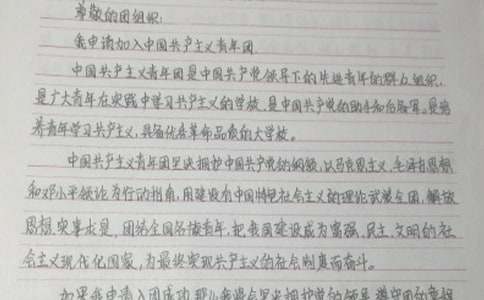 尊敬的团组织:
我申请加入中国共产主义青年团.
中国共产主义青年团是中国共产党领导下的先进青年的群众组织,
是广大青年在实践中学习共产主义的学校,是中国共产党的助手和后备军.是培
养青年学习共产主义,具备优春革命品质的大学校。
中国共产主义青年团坚决拥护中国共产党的纲领,以马克思主义,毛泽东思想
和邓小平领论为行动指南,用建设有中国特色社会主义的理论武装全团,解放
思想,实事求是,团结全国各族青年,把我国建设成为富强,民主,文明的社
会主义现代化国家,为最终实现共产主义的社会制度而奋斗。
如果我申请入团成功,那么我将会坚决拥护党的领导,遵守团的章程